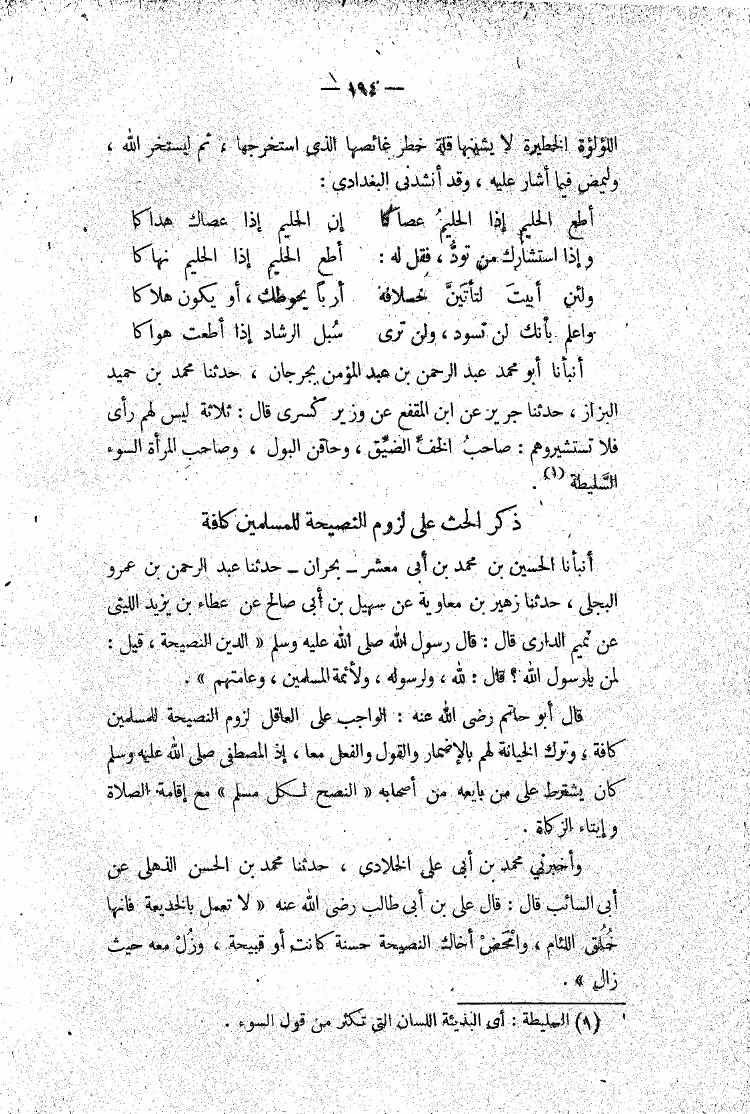 — ١٩٤ —
اللؤلؤة الخطيرة لا يشينها قلة خطر غائصها الذى استخرجها ، ثم ليستخر الله ،
وليمض فيما أشار عليه ، وقد أنشدنى البغدادى :
أطع الحليم إذا الحليمُ عصاكا إن الحليم إذا عصاك هداكا
وإذا استشارك من تودُّ ، فقل له : أطع الحليم إذا الحليم نهاكا
ولئن أبيتَ لتأتَينَّ خلافه أرباً يحوطك ، أو يكون هلاكا
واعلم بأنك لن تسود ، ولن ترى سُبل الرشاد إذا أطعت هواكا
أنبأنا أبو محمد عبد الرحمن بن عبد المؤمن بجرجان ، حدثنا محمد بن حميد
البزاز ، حدثنا جرير عن ابن المقفع عن وزير كسرى قال : ثلاثة ليس لهم رأى
فلا تستشيروهم : صاحبُ الخفِّ الضيِّق ، وحاقن البول ، وصاحب المرأة السوء
السَّليطة (١) .
ذكر الحث على لزوم النصيحة للمسلمين كافة
أنبأنا الحسين بن محمد بن أبى معشر ــ بحران ــ حدثنا عبد الرحمن بن عمرو
البجلى ، حدثنا زهير بن معاوية عن سهيل بن أبى صالح عن عطاء بن يزيد الليثى
عن تميم الدارى قال : قال رسول الله صلى الله عليه وسلم « الدين النصيحة ، قيل :
لمن يارسول الله ؟ قال : لله ، ولرسوله ، ولأئمة المسلمين ، وعامتهم » .
قال أبو حاتم رضى الله عنه : الواجب على العاقل لزوم النصيحة للمسلمين
كافة ، وترك الخيانة لهم بالإضمار والقول والفعل معا ، إذ المصطفى صلى الله عليه وسلم
كان يشترط على من بايعه من أصحابه « النصح لكل مسلم » مع إقامة الصلاة
وإيتاء الزكاة .
وأخبرنى محمد بن أبى على الخلادى ، حدثنا محمد بن الحسن الذهلى عن
أبى السائب قال : قال على بن أبى طالب رضى الله عنه « لا تعمل بالخديعة فانها
خُلُق اللئام ، وامْحَضْ أخاك النصيحة حسنة كانت أو قبيحة ، وزُلْ معه حيث
زال » .
(١) السليطة : أى البذيئة اللسان التى تكثر من قول السوء .